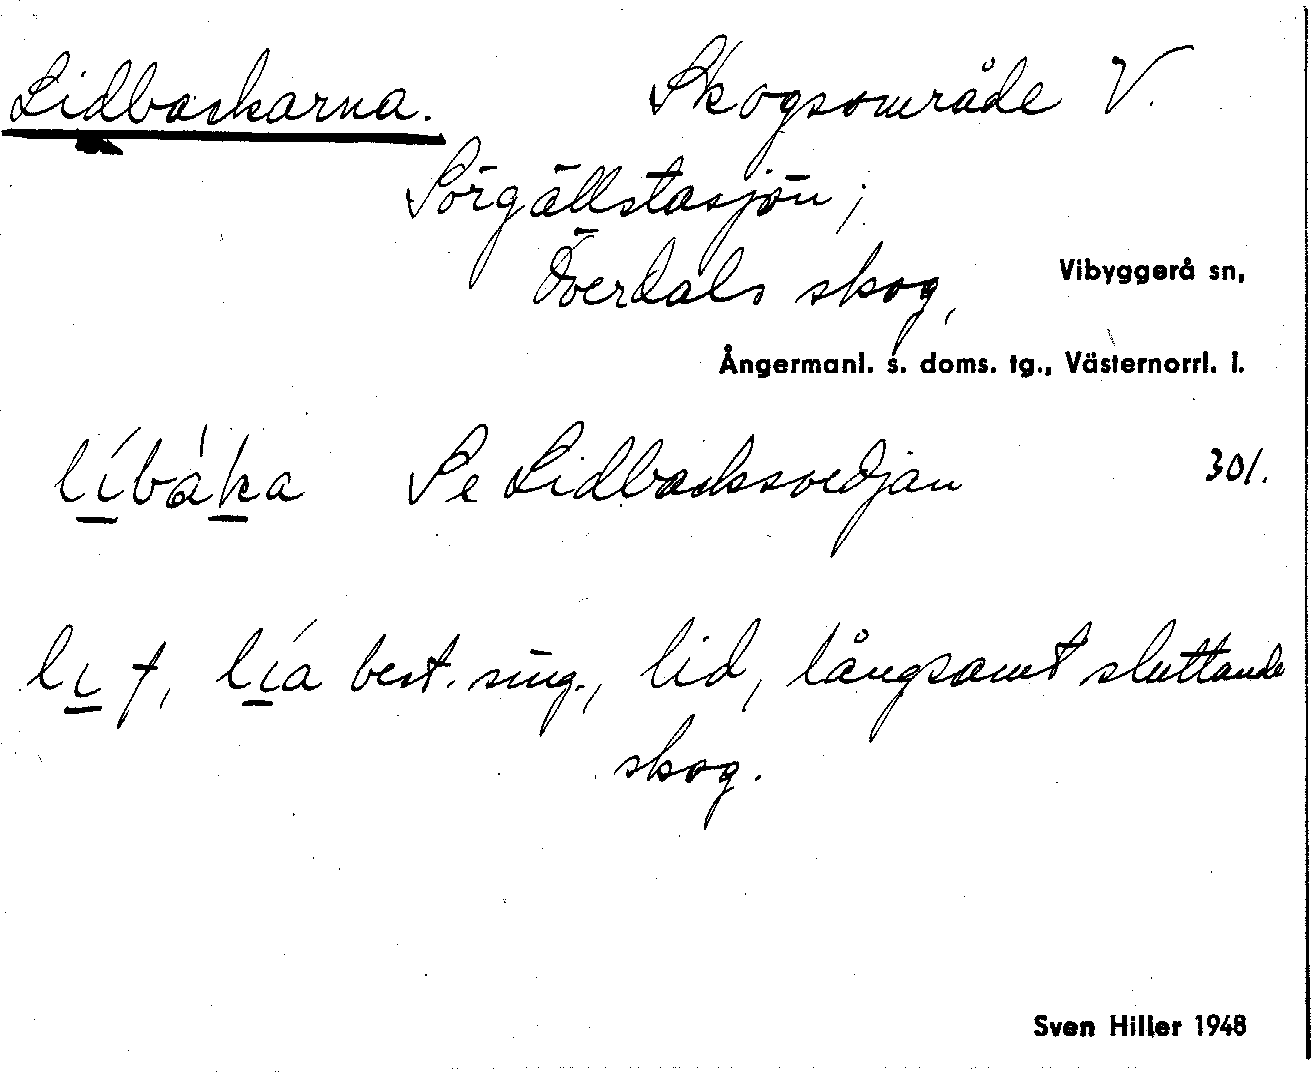 Lidbackarna. Skogsområde V.
Sörgällstasjön;
Överdals skog,
Vibyggerå sn,
Ångermanl. s. doms. tg., Västernorrl. l.
líbák̲a Se Lidbacksvedjan 301.
li̲ f, lí̲a best. sing., lid, långsamt sluttande
skog.
Sven Hiller 1948